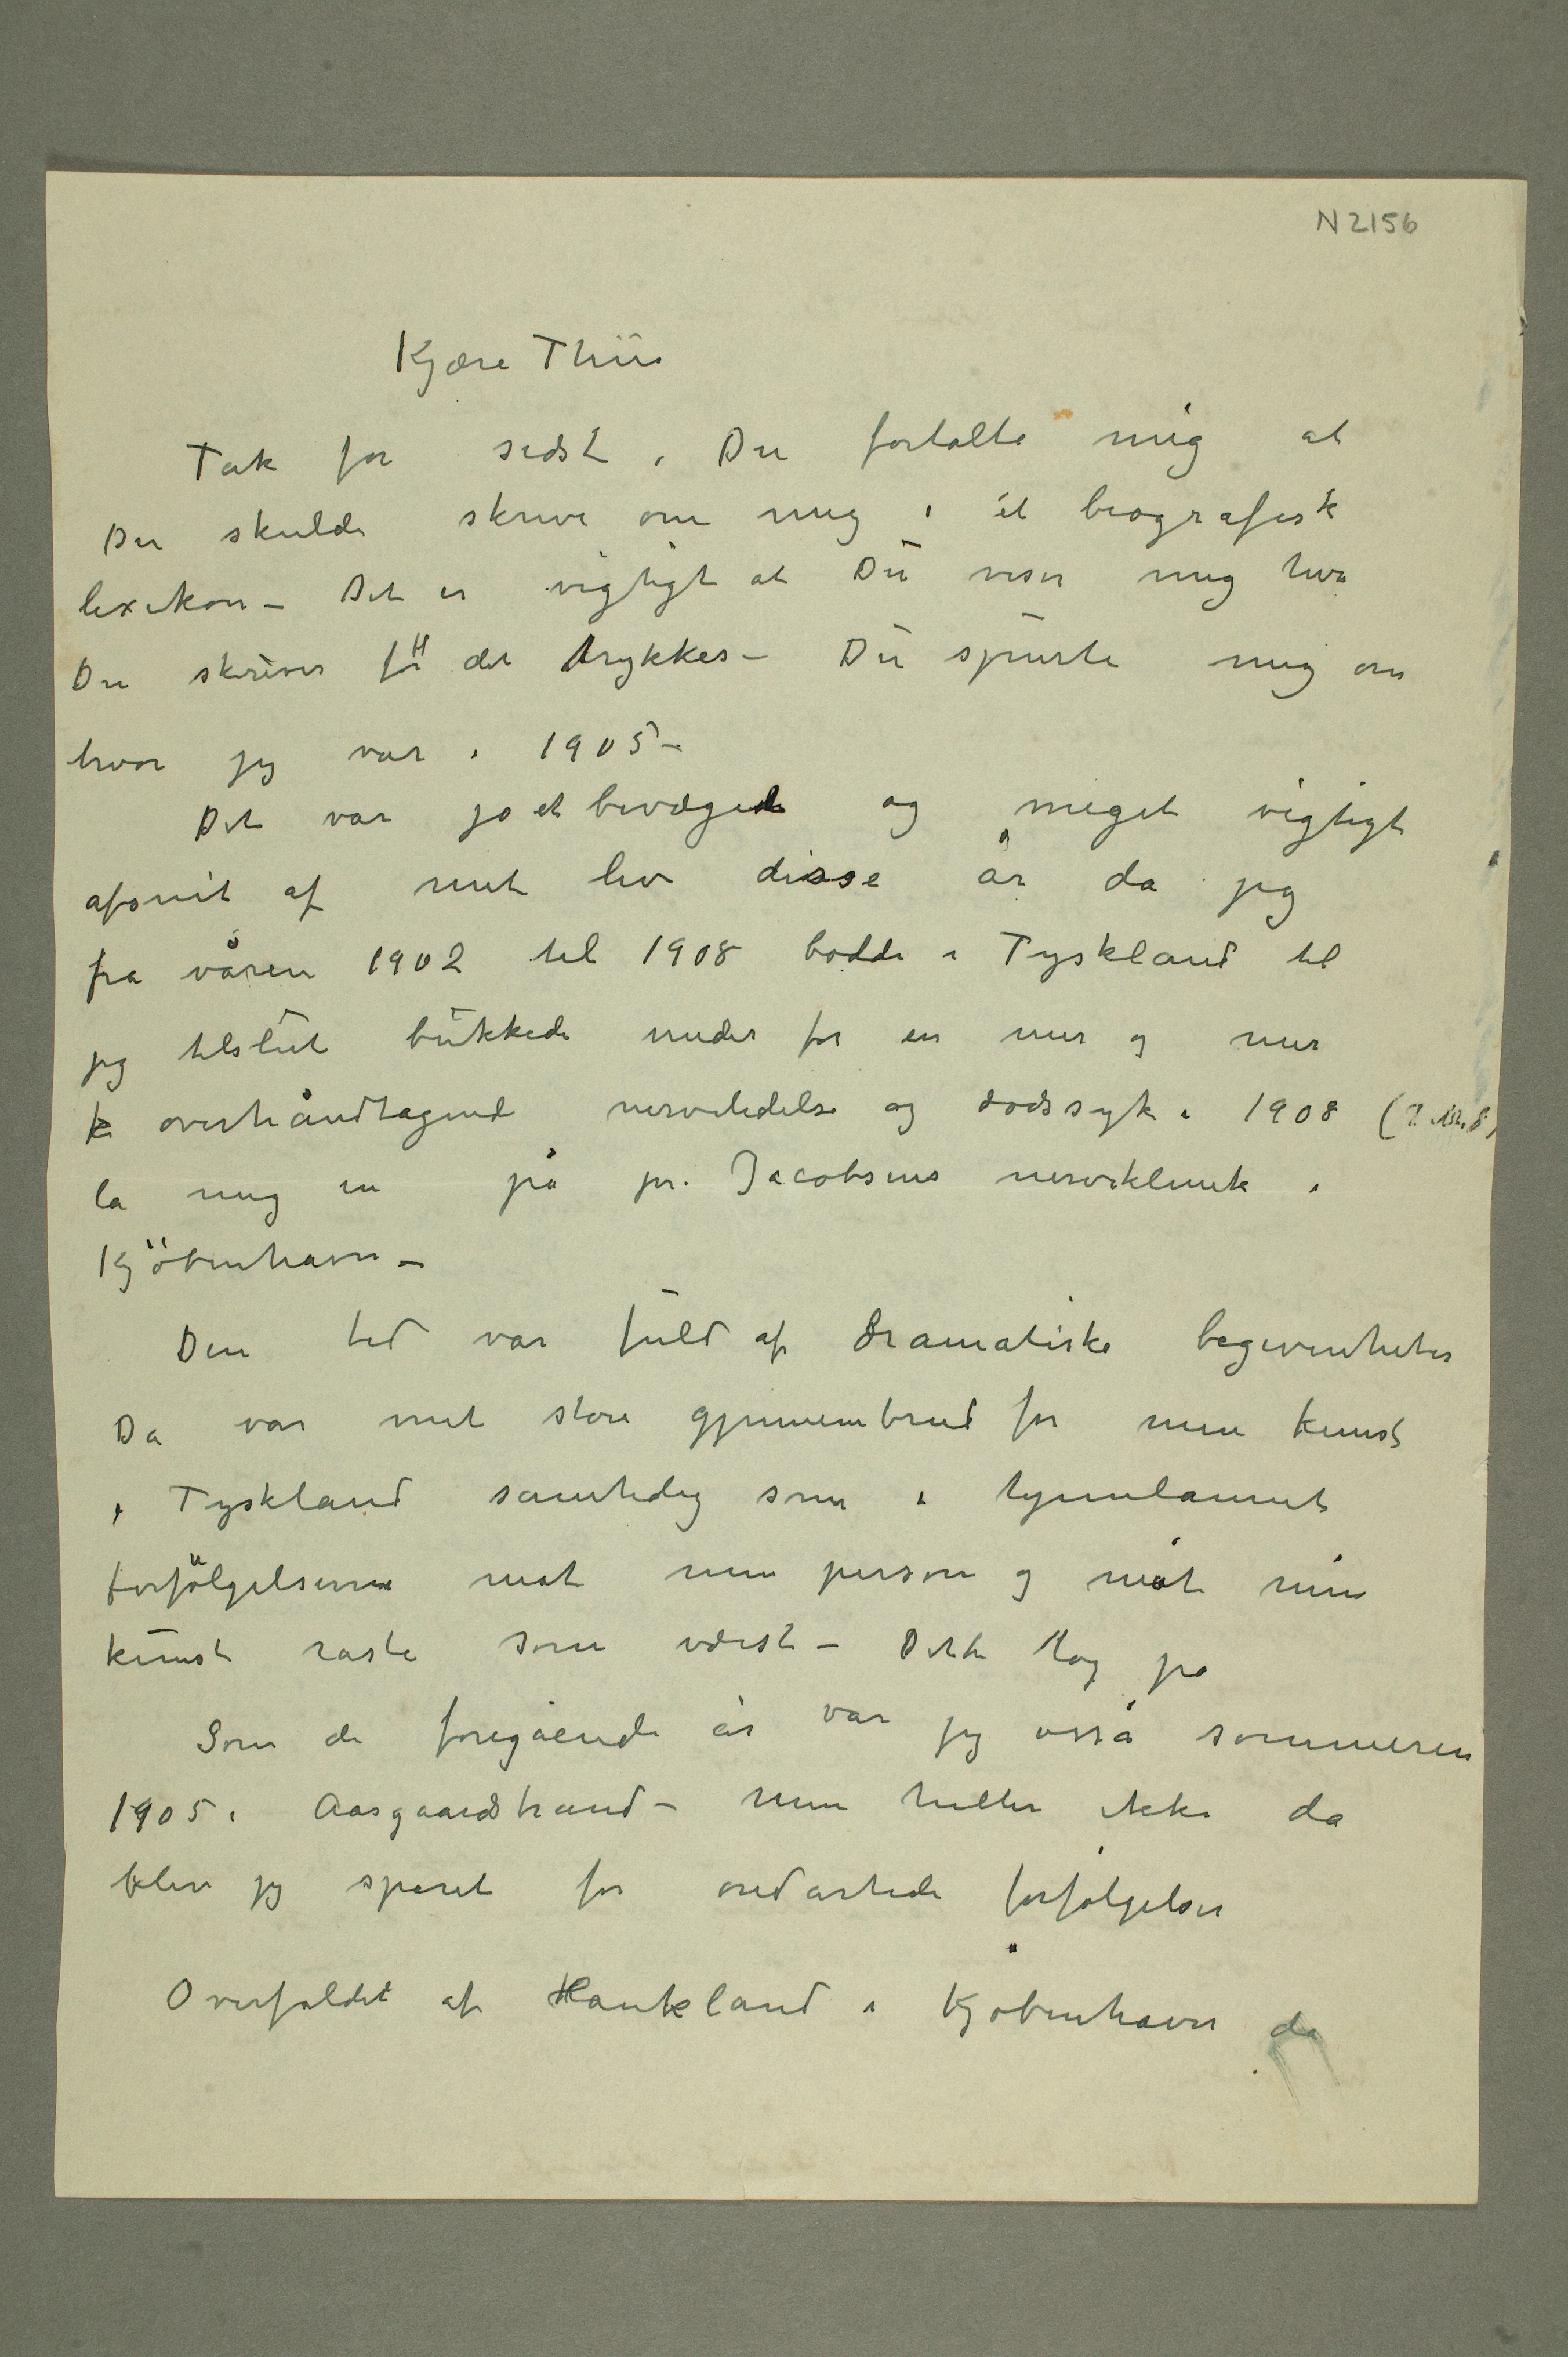 N 2156
Kjære Thiis
Tak for sidst, Du fortalte mig at
Du skulde skrive om mig i et biografisk
lexikon – Det er vigtigt at Du viser mig hva
Du skriver før det trykkes – Du spurte mig om
hvor jeg var i 1905 –
Det var jo et bevæget og meget vigtigt
afsnit af mit liv disse år da jeg
fra våren 1902 til 1908 bodde i Tyskland til
jeg tilslut bukkede under for en mer og mer
overhåndtagende nervelidelse og dødssyk i 1908
la mig in på pr. Jacobsens nerveklinik i
Kjöbenhavn –
Den tid var fuld af dramatiske begivenheter
Da var mit store gjennembrud for min kunst
i Tyskland samtidig som i hjemlannet
forfölgelserne mot min person og mot min
kunst raste som værst – Dette tog på
Som de foregående år var jeg osså sommeren
1905 i Aasgaardstrand – men heller ikke da
blev jeg sparet for ondartede forfølgelser
Overfaldet af Haukland i Kjøbenhavn da